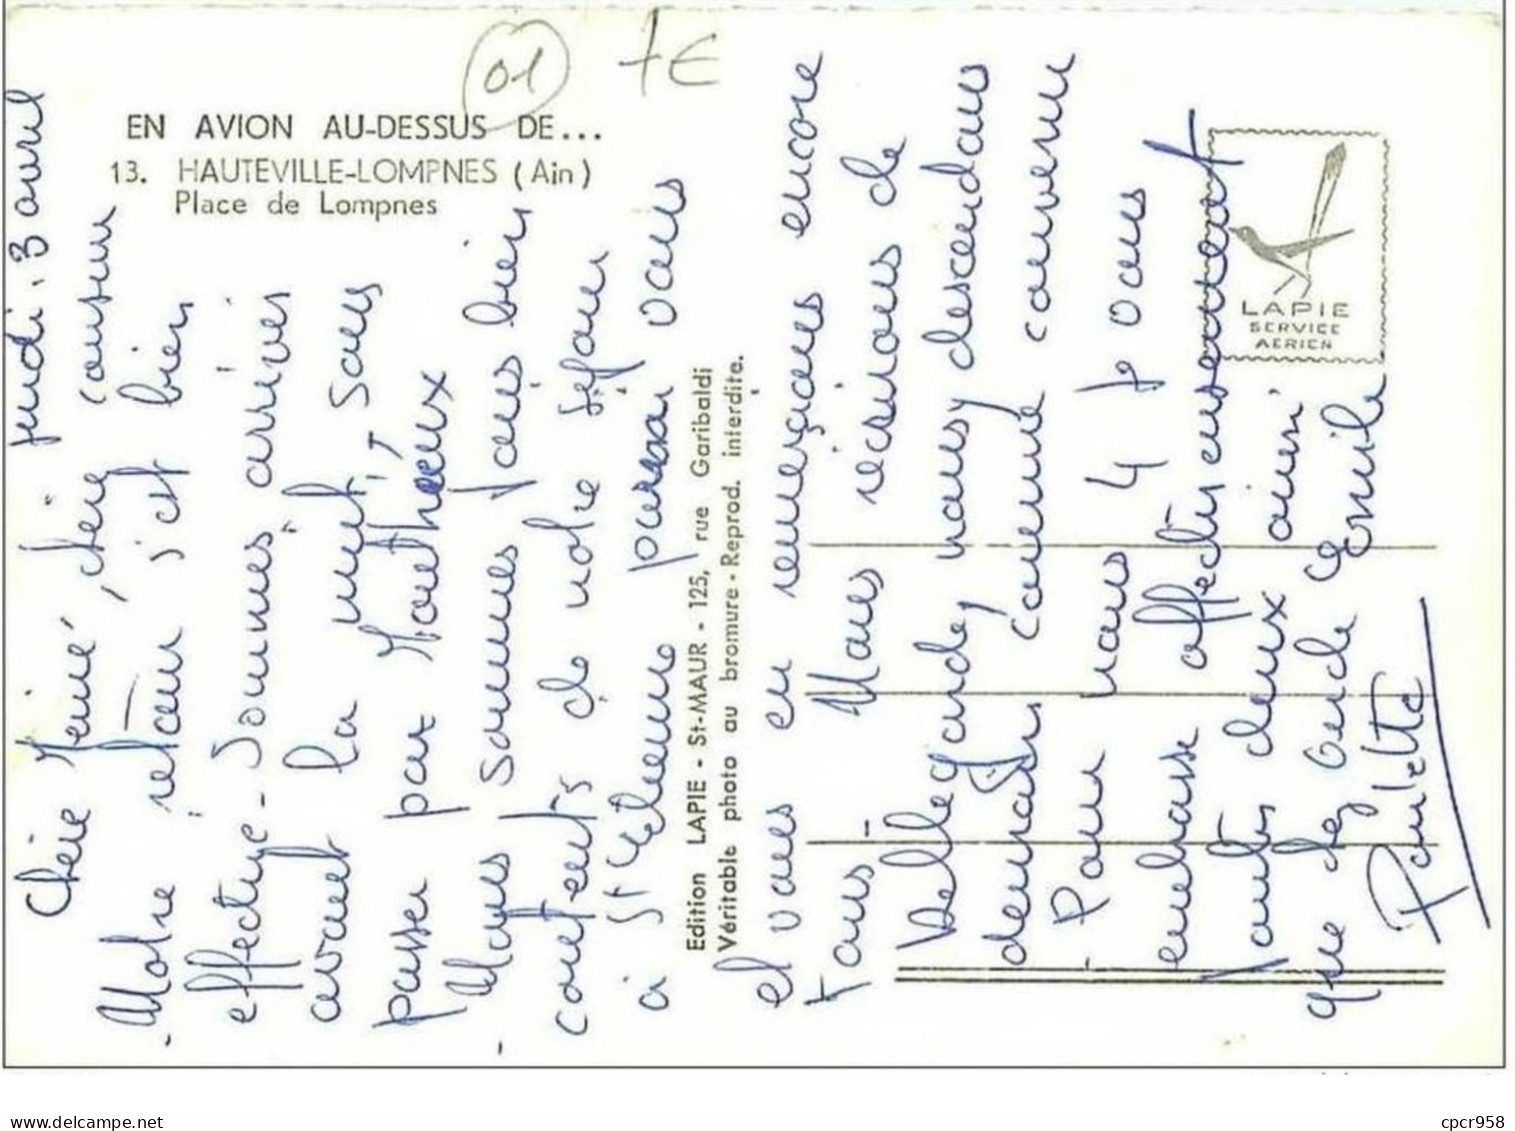 01 7€
EN AVION AU-DESSUS DE...
13. HAUTEVILLE-LOMPNES (Ain)
Place de Lompnes
LAPIE
SERVICE
AERIEN
Edition LAPIE - St-MAUR - 125, rue Garibaldi
Véritable photo au bromure - Reprod. interdite.
jeudi 3 avril
Chère, cher cousin
- Notre retour s'est bien
effectué - Sommes arrivés
avant la nuit, sans
passer par
- Nous sommes tous bien
contents de notre séjour
à St Etienne parmi vous
et vous en remerçions encore
tous - Nous récrirons de
Bellegarde, nous y descendons
demain comme convenu
- Pour nous 4 je vous
embrasse affectueusement
tous deux ainsi
que de Emile
Paulette
cpcr958
www.delcampe.net